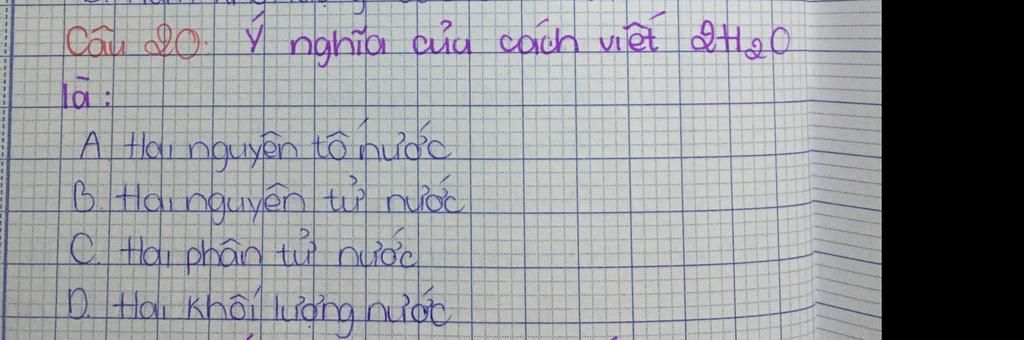 Câu 20. Ý nghĩa của cách viết 2H₂O
là:
A Hai nguyên tố nước
B. Hai nguyên tử nước
C. Hai phân tử nước
D. Hai khối lượng nước